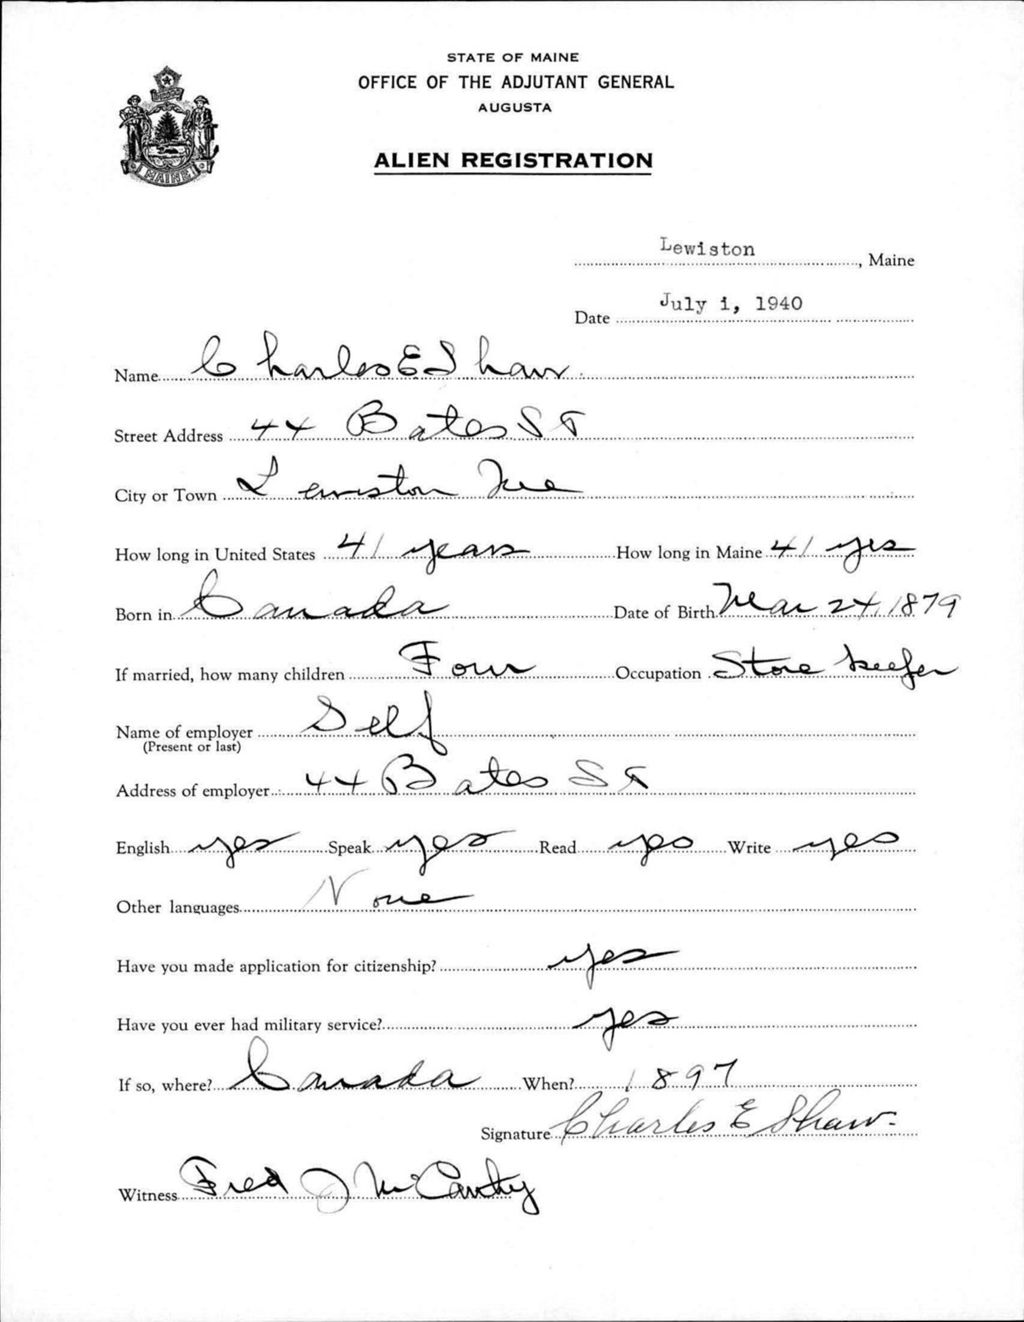 STATE OF MAINE
OFFICE OF THE ADJUTANT GENERAL
AUGUSTA
ALIEN REGISTRATION
MAINE
Lewiston, Maine
Date July 1, 1940
Name Charles E Shaw
Street Address 44 Bates St
City or Town Lewiston Me
How long in United States 41 years How long in Maine 41 yes
Born in Canada Date of Birth Mar 24, 1879
If married, how many children Four Occupation Store keefer
Name of employer Self
(Present or last)
Address of employer 44 Bates St
English yes Speak yes Read yes Write yes
Other languages None
Have you made application for citizenship? yes
Have you ever had military service? yes
If so, where? Canada When? 1897
Signature Charles E Shaw.
Witness Fred J McCarthy